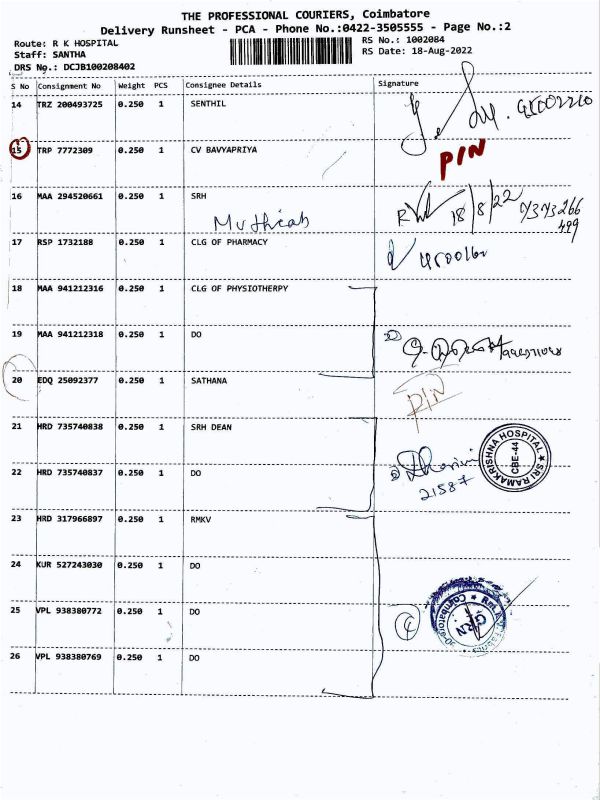 THE PROFESSIONAL COURIERS, Coimbatore
Delivery Runsheet - PCA - Phone No.:0422-3505555 - Page No.:2
Route: R K HOSPITAL
Staff: SANTHA
DRS No.: DCJB100208402
RS No.: 1002084
RS Date: 18-Aug-2022
S No Consignment No Weight PCS Consignee Details Signature
14 TRZ 200493725 0.250 1 SENTHIL
15 TRP 7772309 0.250 1 CV BAVYAPRIYA PIN
16 MAA 294520661 0.250 1 SRH 18/8/22
Muthiah
17 RSP 1732188 0.250 1 CLG OF PHARMACY
18 MAA 941212316 0.250 1 CLG OF PHYSIOTHERPY
19 MAA 941212318 0.250 1 DO
20 EDQ 25092377 0.250 1 SATHANA PIN
21 HRD 735740838 0.250 1 SRH DEAN
SRI RAMAKRISHNA HOSPITAL
CBE-44
22 HRD 735740837 0.250 1 DO 21587
23 HRD 317966897 0.250 1 RMKV
24 KUR 527243030 0.250 1 DO
25 VPL 938380772 0.250 1 DO
GRN
26 VPL 938380769 0.250 1 DO